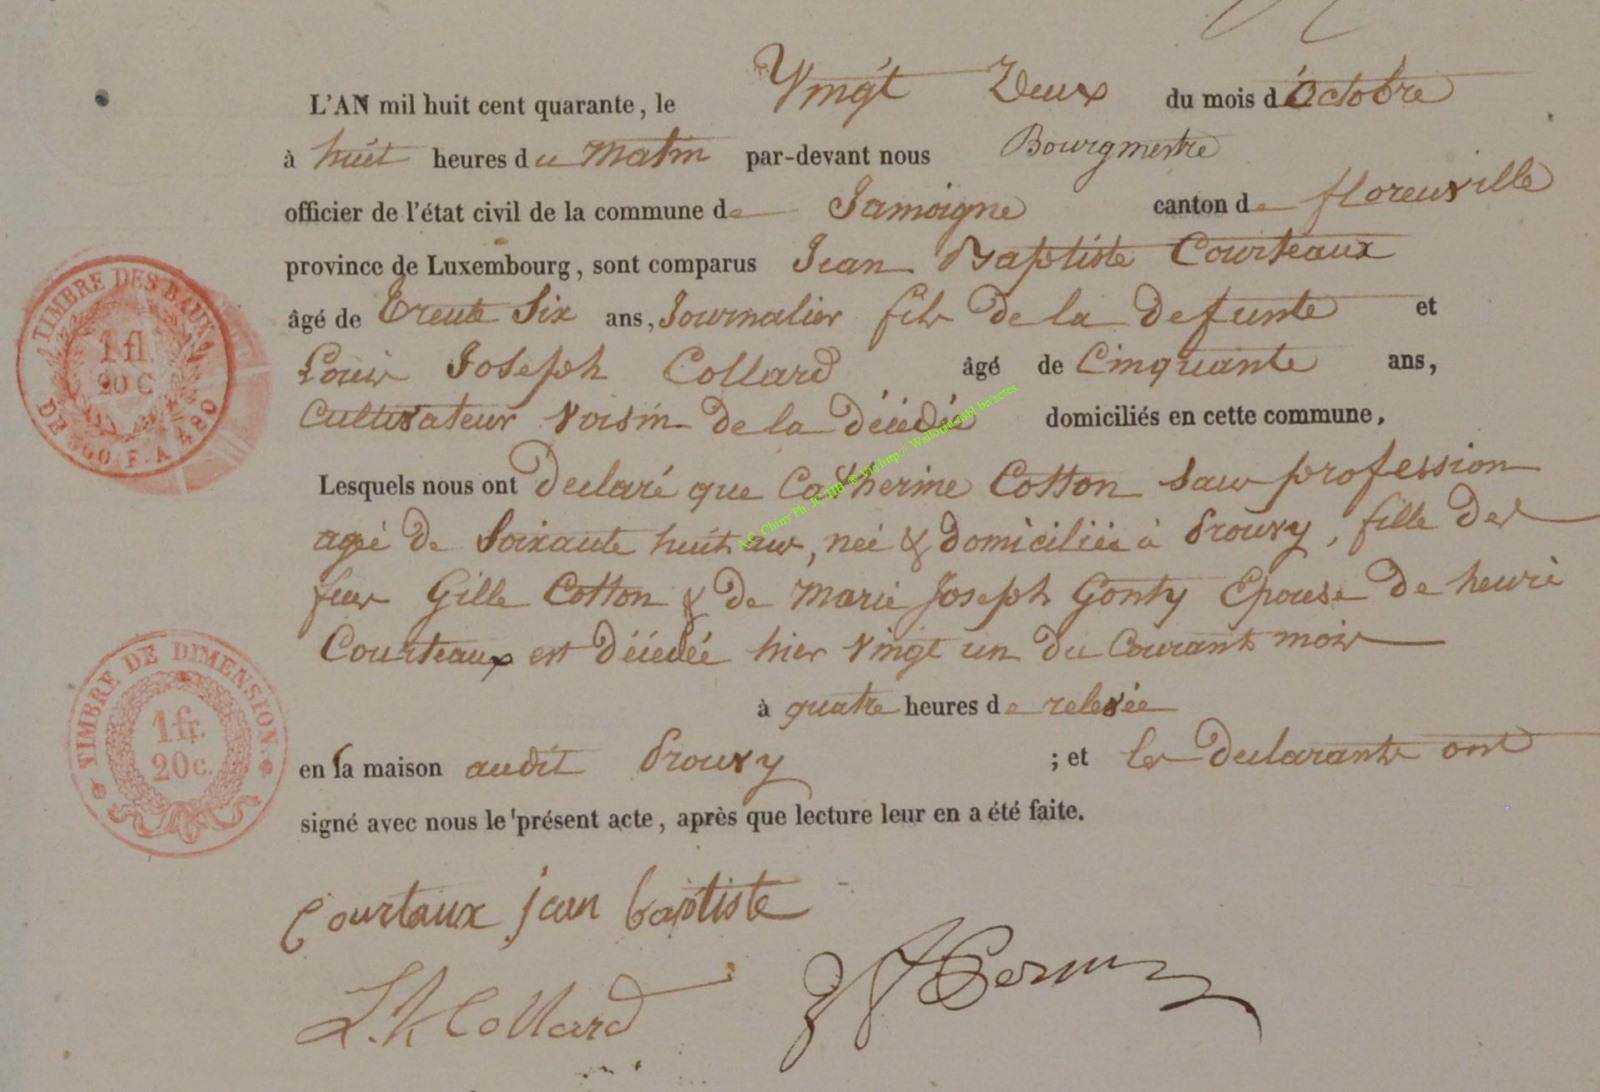 L'AN mil huit cent quarante, le Vingt Deux du mois d'Octobre
à huit heures du Matin par-devant nous Bourgmestre
officier de l'état civil de la commune de Jamoigne canton de florenville
province de Luxembourg, sont comparus Jean Baptiste Courteaux
âgé de Trente Six ans, Journalier fils de la defunte et
Louis Joseph Collard âgé de Cinquante ans,
Cultivateur voisin de la décédée domiciliés en cette commune,
Lesquels nous ont Declaré que Catherine Cotton Sans profession
agée de Soixante huit ans, née & domiciliée à Prouvy, fille des
feus Gille Cotton & de Marie Joseph Gonty Epouse de henri
Courteaux est décédée hier vingt un du Courant mois
à quatre heures de relevée
en la maison audit Prouvy ; et les declarants ont
signé avec nous le présent acte, après que lecture leur en a été faite.
Courtaux jean baptiste
L. J. Collard
TIMBRE DES BAUX
1 fl.
20 C
TIMBRE DE DIMENSION.
1 fr.
20 c.